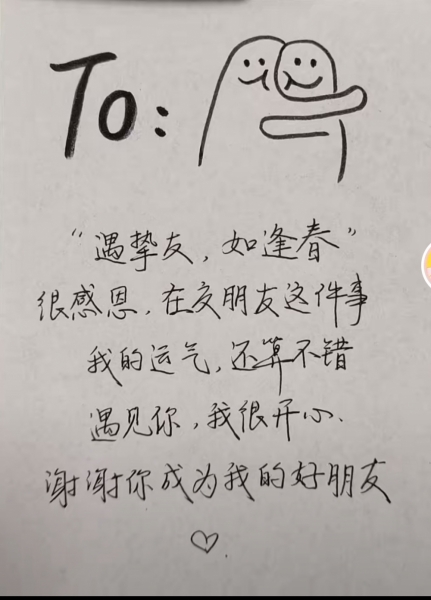 To:
“遇挚友，如逢春”
很感恩，在交朋友这件事
我的运气，还算不错
遇见你，我很开心、
谢谢你成为我的好朋友